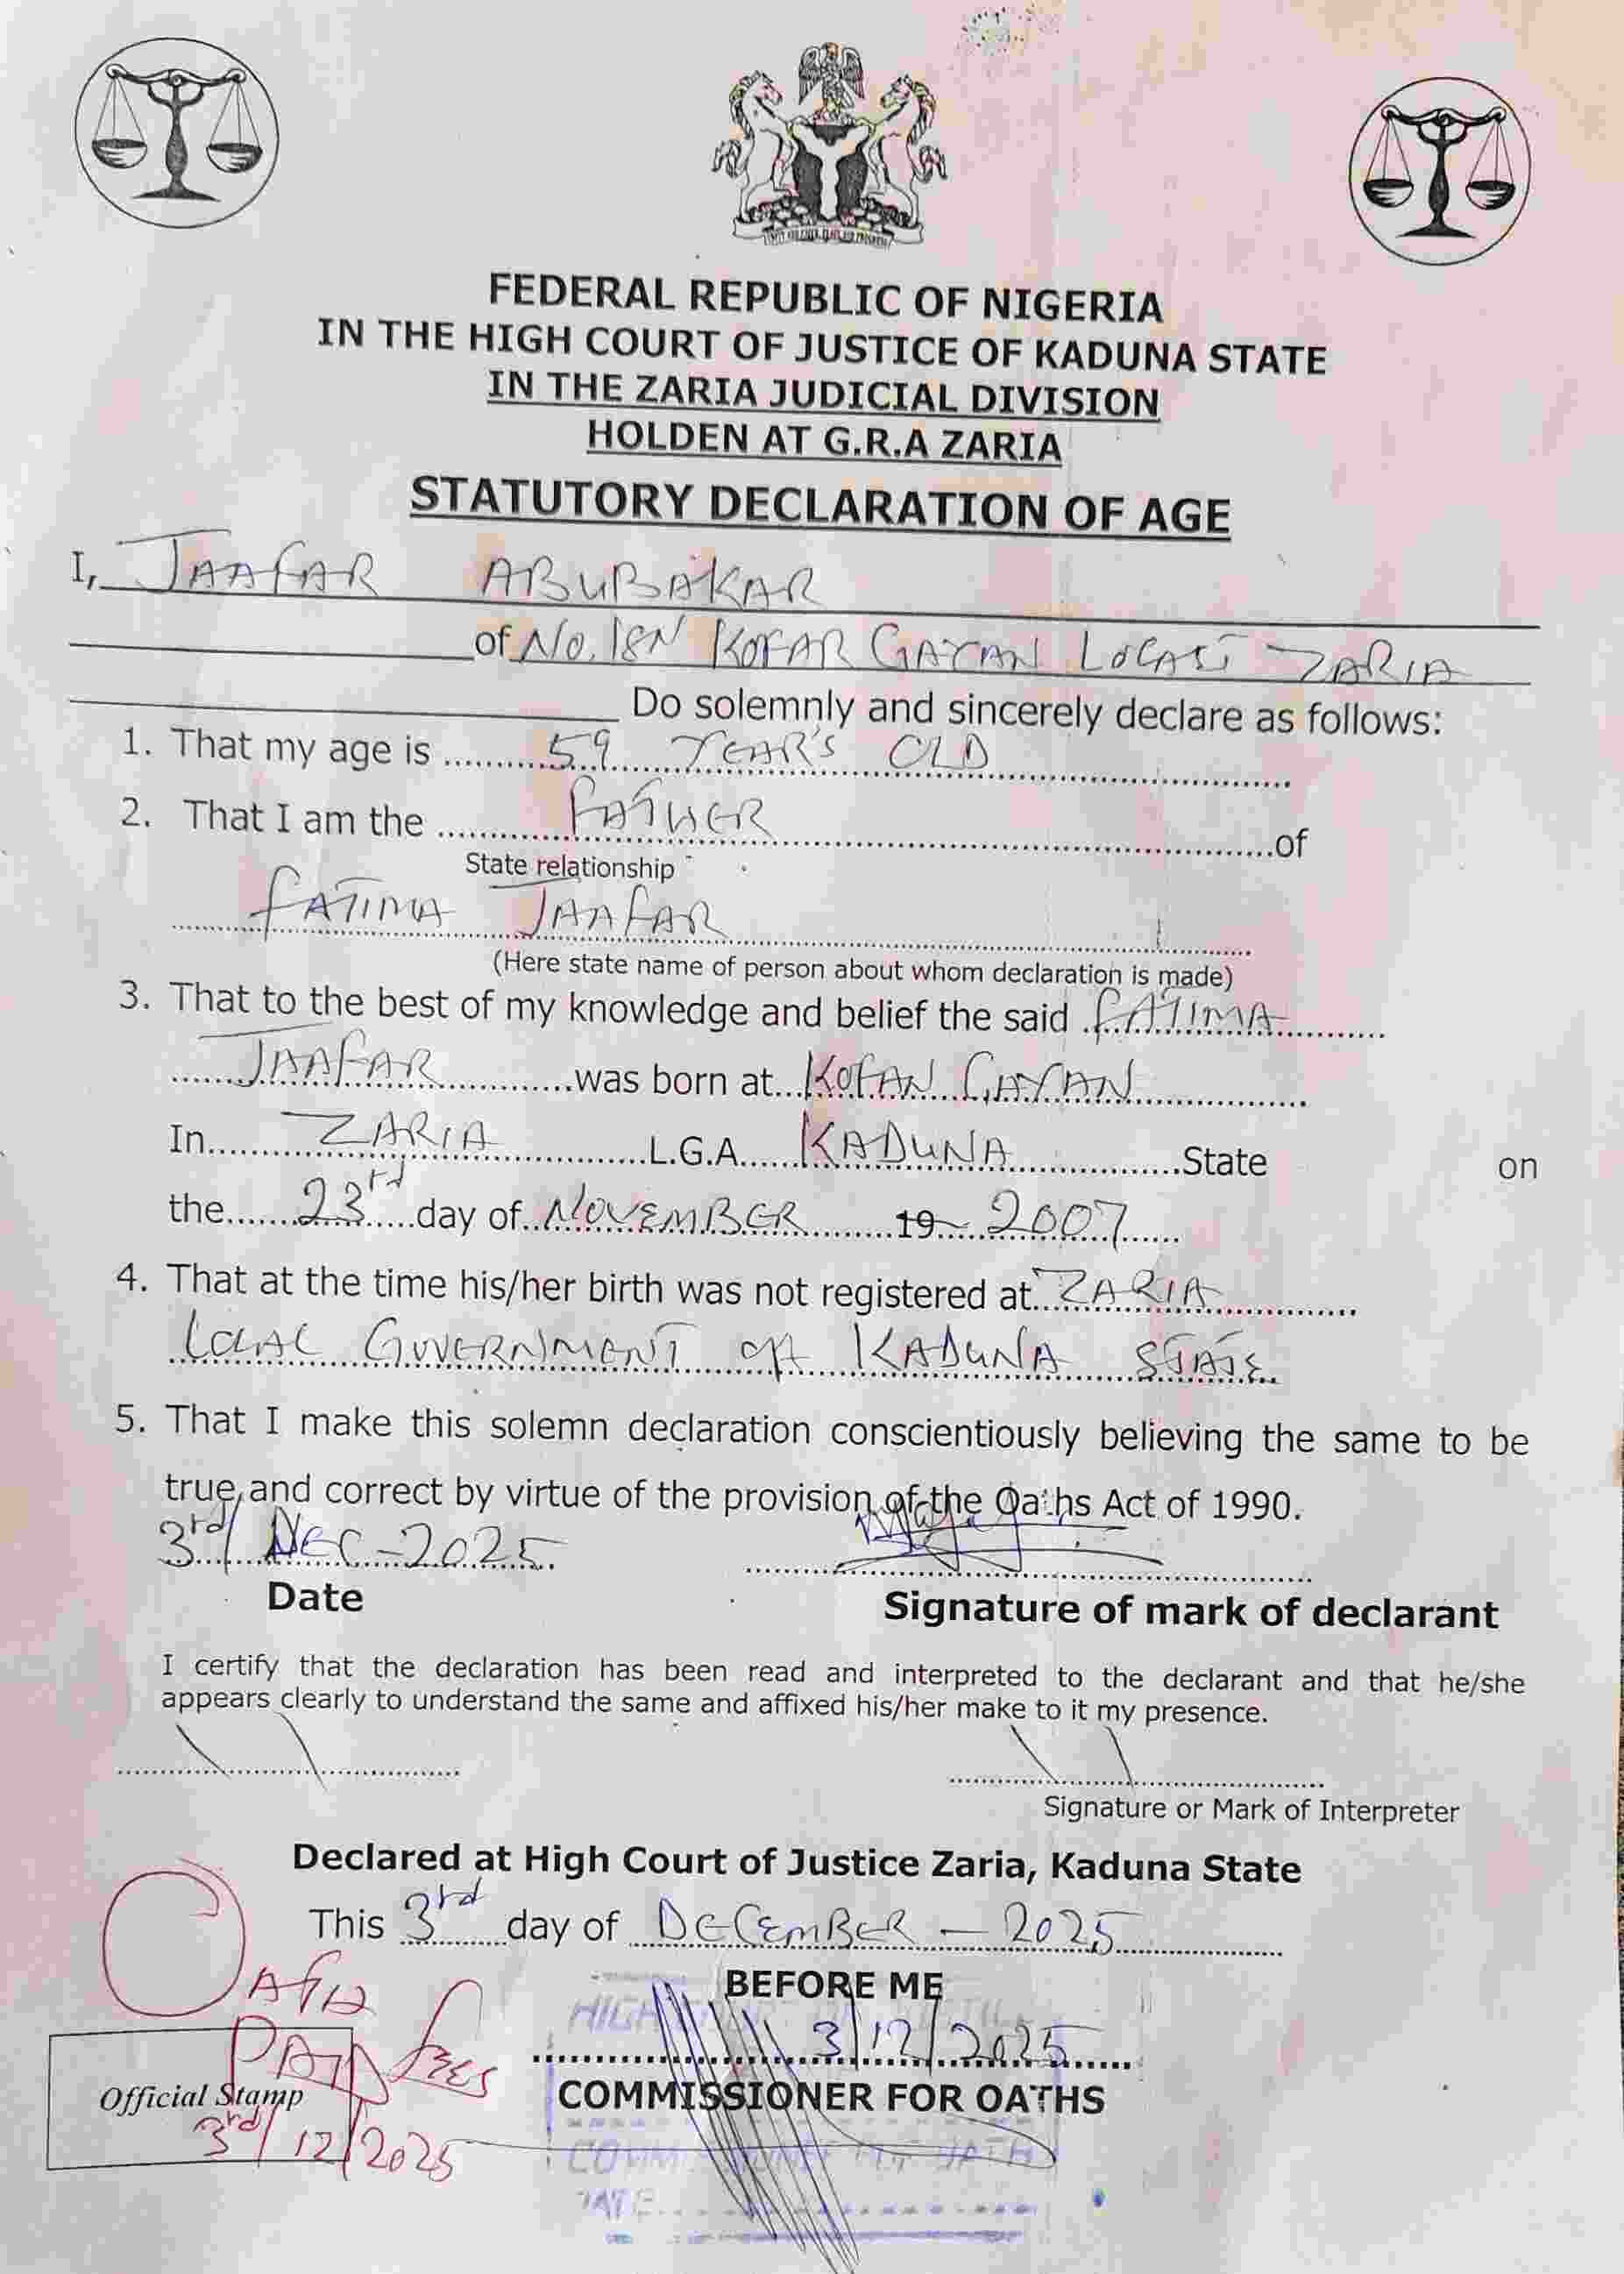 FEDERAL REPUBLIC OF NIGERIA
IN THE HIGH COURT OF JUSTICE OF KADUNA STATE
IN THE ZARIA JUDICIAL DIVISION
HOLDEN AT G.R.A ZARIA
STATUTORY DECLARATION OF AGE
I, JAAFAR ABUBAKAR
of No. 18N KOFAR GAYAN ZARIA
Do solemnly and sincerely declare as follows:
1. That my age is 59 YEAR'S OLD
2. That I am the FATHER of
State relationship
FATIMA JAAFAR
(Here state name of person about whom declaration is made)
3. That to the best of my knowledge and belief the said FATIMA
JAAFAR was born at KOFAN GAYAN
In ZARIA L.G.A. KADUNA State on
the 23rd day of NOVEMBER 19 2007
4. That at the time his/her birth was not registered at ZARIA
LOCAL GOVERNMENT OF KADUNA STATE
5. That I make this solemn declaration conscientiously believing the same to be
true and correct by virtue of the provision of the Oaths Act of 1990.
3rd/ DEC-2025
Date Signature of mark of declarant
I certify that the declaration has been read and interpreted to the declarant and that he/she
appears clearly to understand the same and affixed his/her make to it my presence.
Signature or Mark of Interpreter
Declared at High Court of Justice Zaria, Kaduna State
This 3rd day of DECEMBER - 2025
BEFORE ME
HIGH
3/12/2025
COMMISSIONER FOR OATHS
OATH
PAID FEES
Official Stamp
3rd/12/2025
OATH
DATE